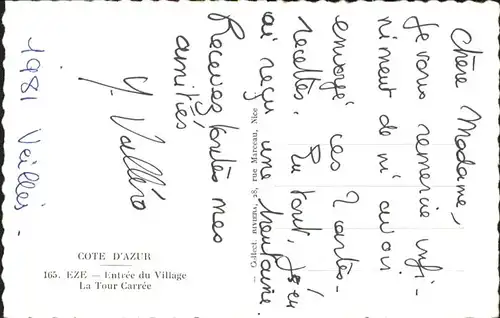 Chère Madame,
Je vous remercie infi-
niment de m'avoir
envoyé ces 2 cartes-
recettes. En tout, j'en
ai reçu une
Recevez toutes mes
amitiés
Y. Valléro
1981
COTE D'AZUR
165. EZE — Entrée du Village
La Tour Carrée
— Collect. RIVIERA, 28, rue Marceau, Nice —